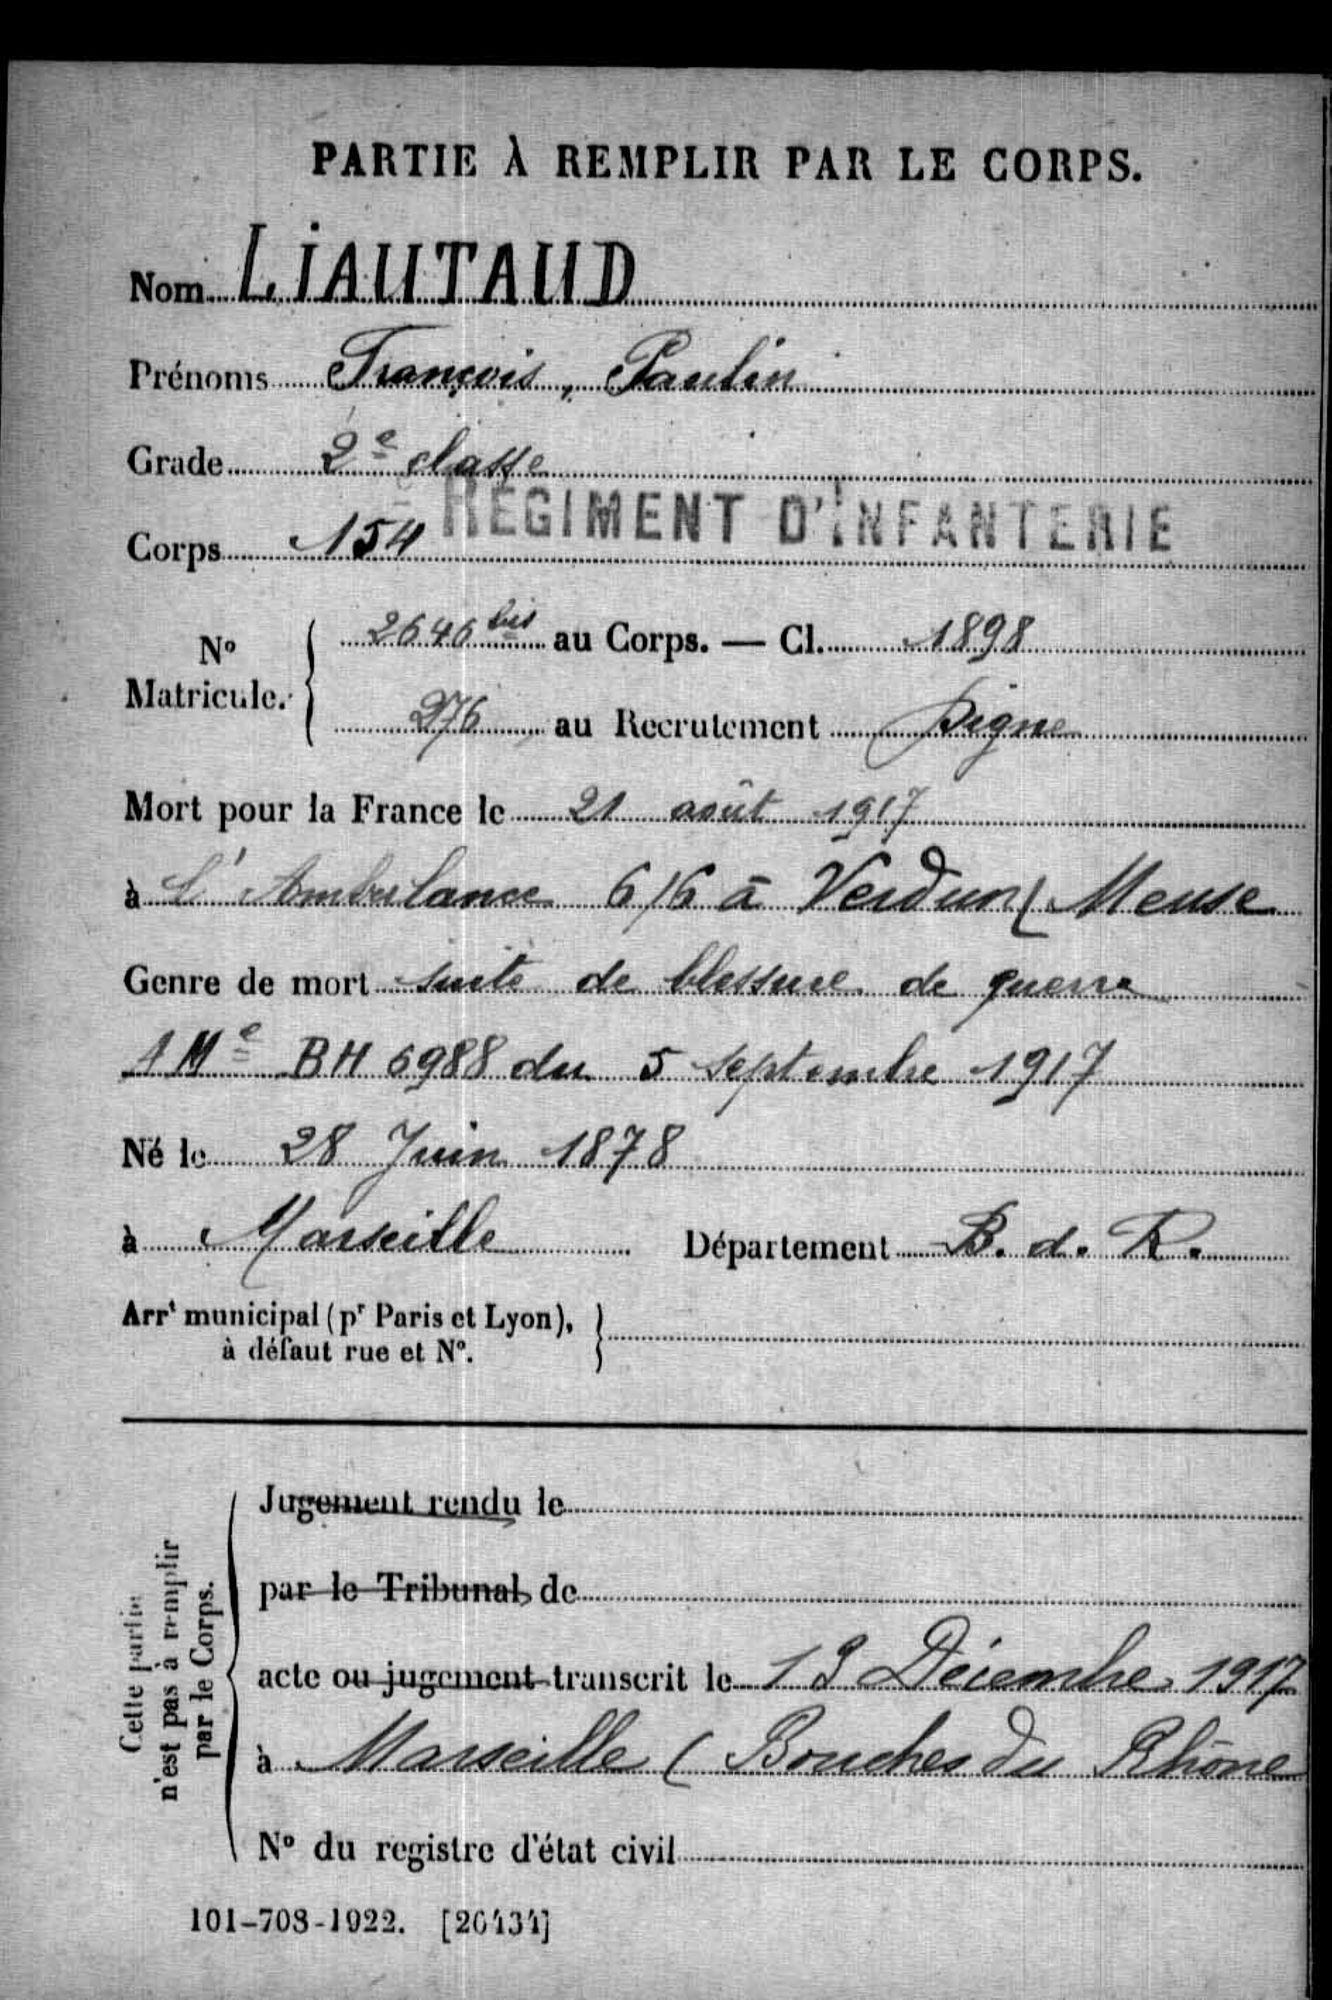 PARTIE À REMPLIR PAR LE CORPS.
Nom LIAUTAUD
Prénoms François, Paulin
Grade 2e classe
Corps 154 RÉGIMENT D'INFANTERIE
No Matricule. 2646 bis au Corps. — Cl. 1898
276 au Recrutement Digne
Mort pour la France le 21 août 1917
à l'Ambulance 6/6 à Verdun (Meuse
Genre de mort suite de blessure de guerre
BH 6988 du 5 septembre 1917
Né le 28 Juin 1878
à Marseille Département B. d. R.
Arrt municipal (pr Paris et Lyon),
à défaut rue et No.
Cette partie
n'est pas à remplir
par le Corps.
Jugement rendu le
par le Tribunal de
acte ou jugement transcrit le 13 Décembre 1917
à Marseille (Bouches du Rhône
No du registre d'état civil
101-708-1922. [26434]